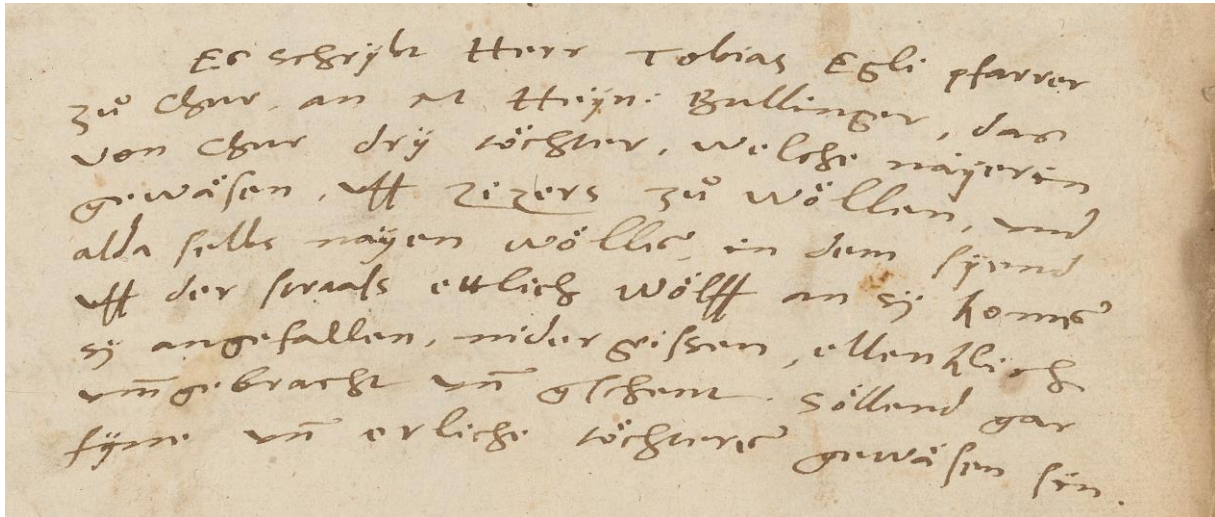 Es schrybt Herr Tobias Egli pfarrer
zů Chur, an M. Heÿn: Bullinger, das
von Chur drÿ töchter, welche näÿerin
gewäsen, uff Zizers zů wöllen, und
alda selbs näÿen wöllē, in dem sÿend
uff der straaſs ettlich wölff an sÿ komē
sÿ angefallen, nidergrissen, ellenklich
um̄gebracht un̄ gschent. Söllend gar
fÿne un̄ erliche töchterē gewäsen sin.